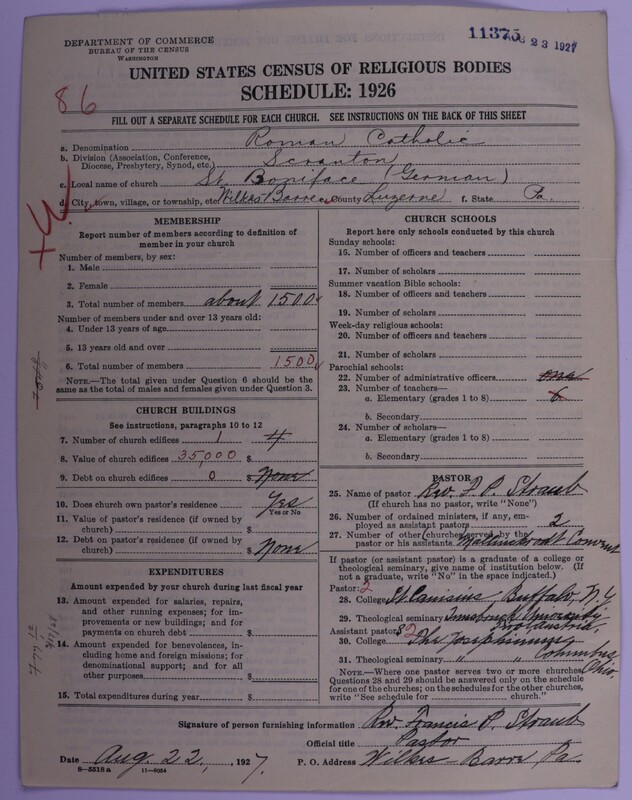 11375 AUG 23 1927
DEPARTMENT OF COMMERCE
BUREAU OF THE CENSUS
WASHINGTON
UNITED STATES CENSUS OF RELIGIOUS BODIES
SCHEDULE: 1926
86
FILL OUT A SEPARATE SCHEDULE FOR EACH CHURCH. SEE INSTRUCTIONS ON THE BACK OF THIS SHEET
a. Denomination Roman Catholic
b. Division (Association, Conference, Diocese, Presbytery, Synod, etc.) Scranton
c. Local name of church St. Boniface (German)
d. City, town, village, or township, etc. Wilkes Barre e. County Luzerne f. State Pa.
+W.
MEMBERSHIP
Report number of members according to definition of
member in your church
Number of members, by sex:
1. Male
2. Female
3. Total number of members about 1500
Number of members under and over 13 years old:
4. Under 13 years of age
5. 13 years old and over
6. Total number of members 1500
NOTE.—The total given under Question 6 should be
same as the total of males and females given under Question 3.
CHURCH BUILDINGS
See instructions, paragraphs 10 to 12
7. Number of church edifices 1 4
8. Value of church edifices 35,000 $
9. Debt on church edifices 0 $ None
10. Does church own pastor's residence Yes
Yes or No
11. Value of pastor's residence (if owned by
church) $
12. Debt on pastor's residence (if owned by
church) $ None
EXPENDITURES
Amount expended by your church during last fiscal year
13. Amount expended for salaries, repairs,
and other running expenses; for im-
provements or new buildings; and for
payments on church debt $
14. Amount expended for benevolences, in-
cluding home and foreign missions; for
denominational support; and for all
other purposes $
15. Total expenditures during year $
CHURCH SCHOOLS
Report here only schools conducted by this church
Sunday schools:
16. Number of officers and teachers
17. Number of scholars
Summer vacation Bible schools:
18. Number of officers and teachers
19. Number of scholars
Week-day religious schools:
20. Number of officers and teachers
21. Number of scholars
Parochial schools:
22. Number of administrative officers one
23. Number of teachers—
a. Elementary (grades 1 to 8) 6
b. Secondary
24. Number of scholars—
a. Elementary (grades 1 to 8)
b. Secondary
PASTOR
25. Name of pastor Rev. F. P. Straub
(If church has no pastor, write "None")
26. Number of ordained ministers, if any, em-
ployed as assistant pastors 2
27. Number of other churches served by the
pastor or his assistants Mallinckrodt Convent
If pastor (or assistant pastor) is a graduate of a college or
theological seminary, give name of institution below. (If
not a graduate, write "No" in the space indicated.)
Pastor: 2
28. College St Canisius Buffalo N. Y
29. Theological seminary Innsbruck University
Austria
Assistant pastor: 2
30. College The Josephinum
Columbus
31. Theological seminary " " Ohio
NOTE.—Where one pastor serves two or more churches,
Questions 28 and 29 should be answered only on the schedule
for one of the churches; on the schedules for the other churches,
write "See schedule for church."
Signature of person furnishing information Rev. Francis P. Straub
Official title Pastor
Date Aug. 22, 1927. P. O. Address Wilkes-Barre Pa.
8—5518a 11—9054